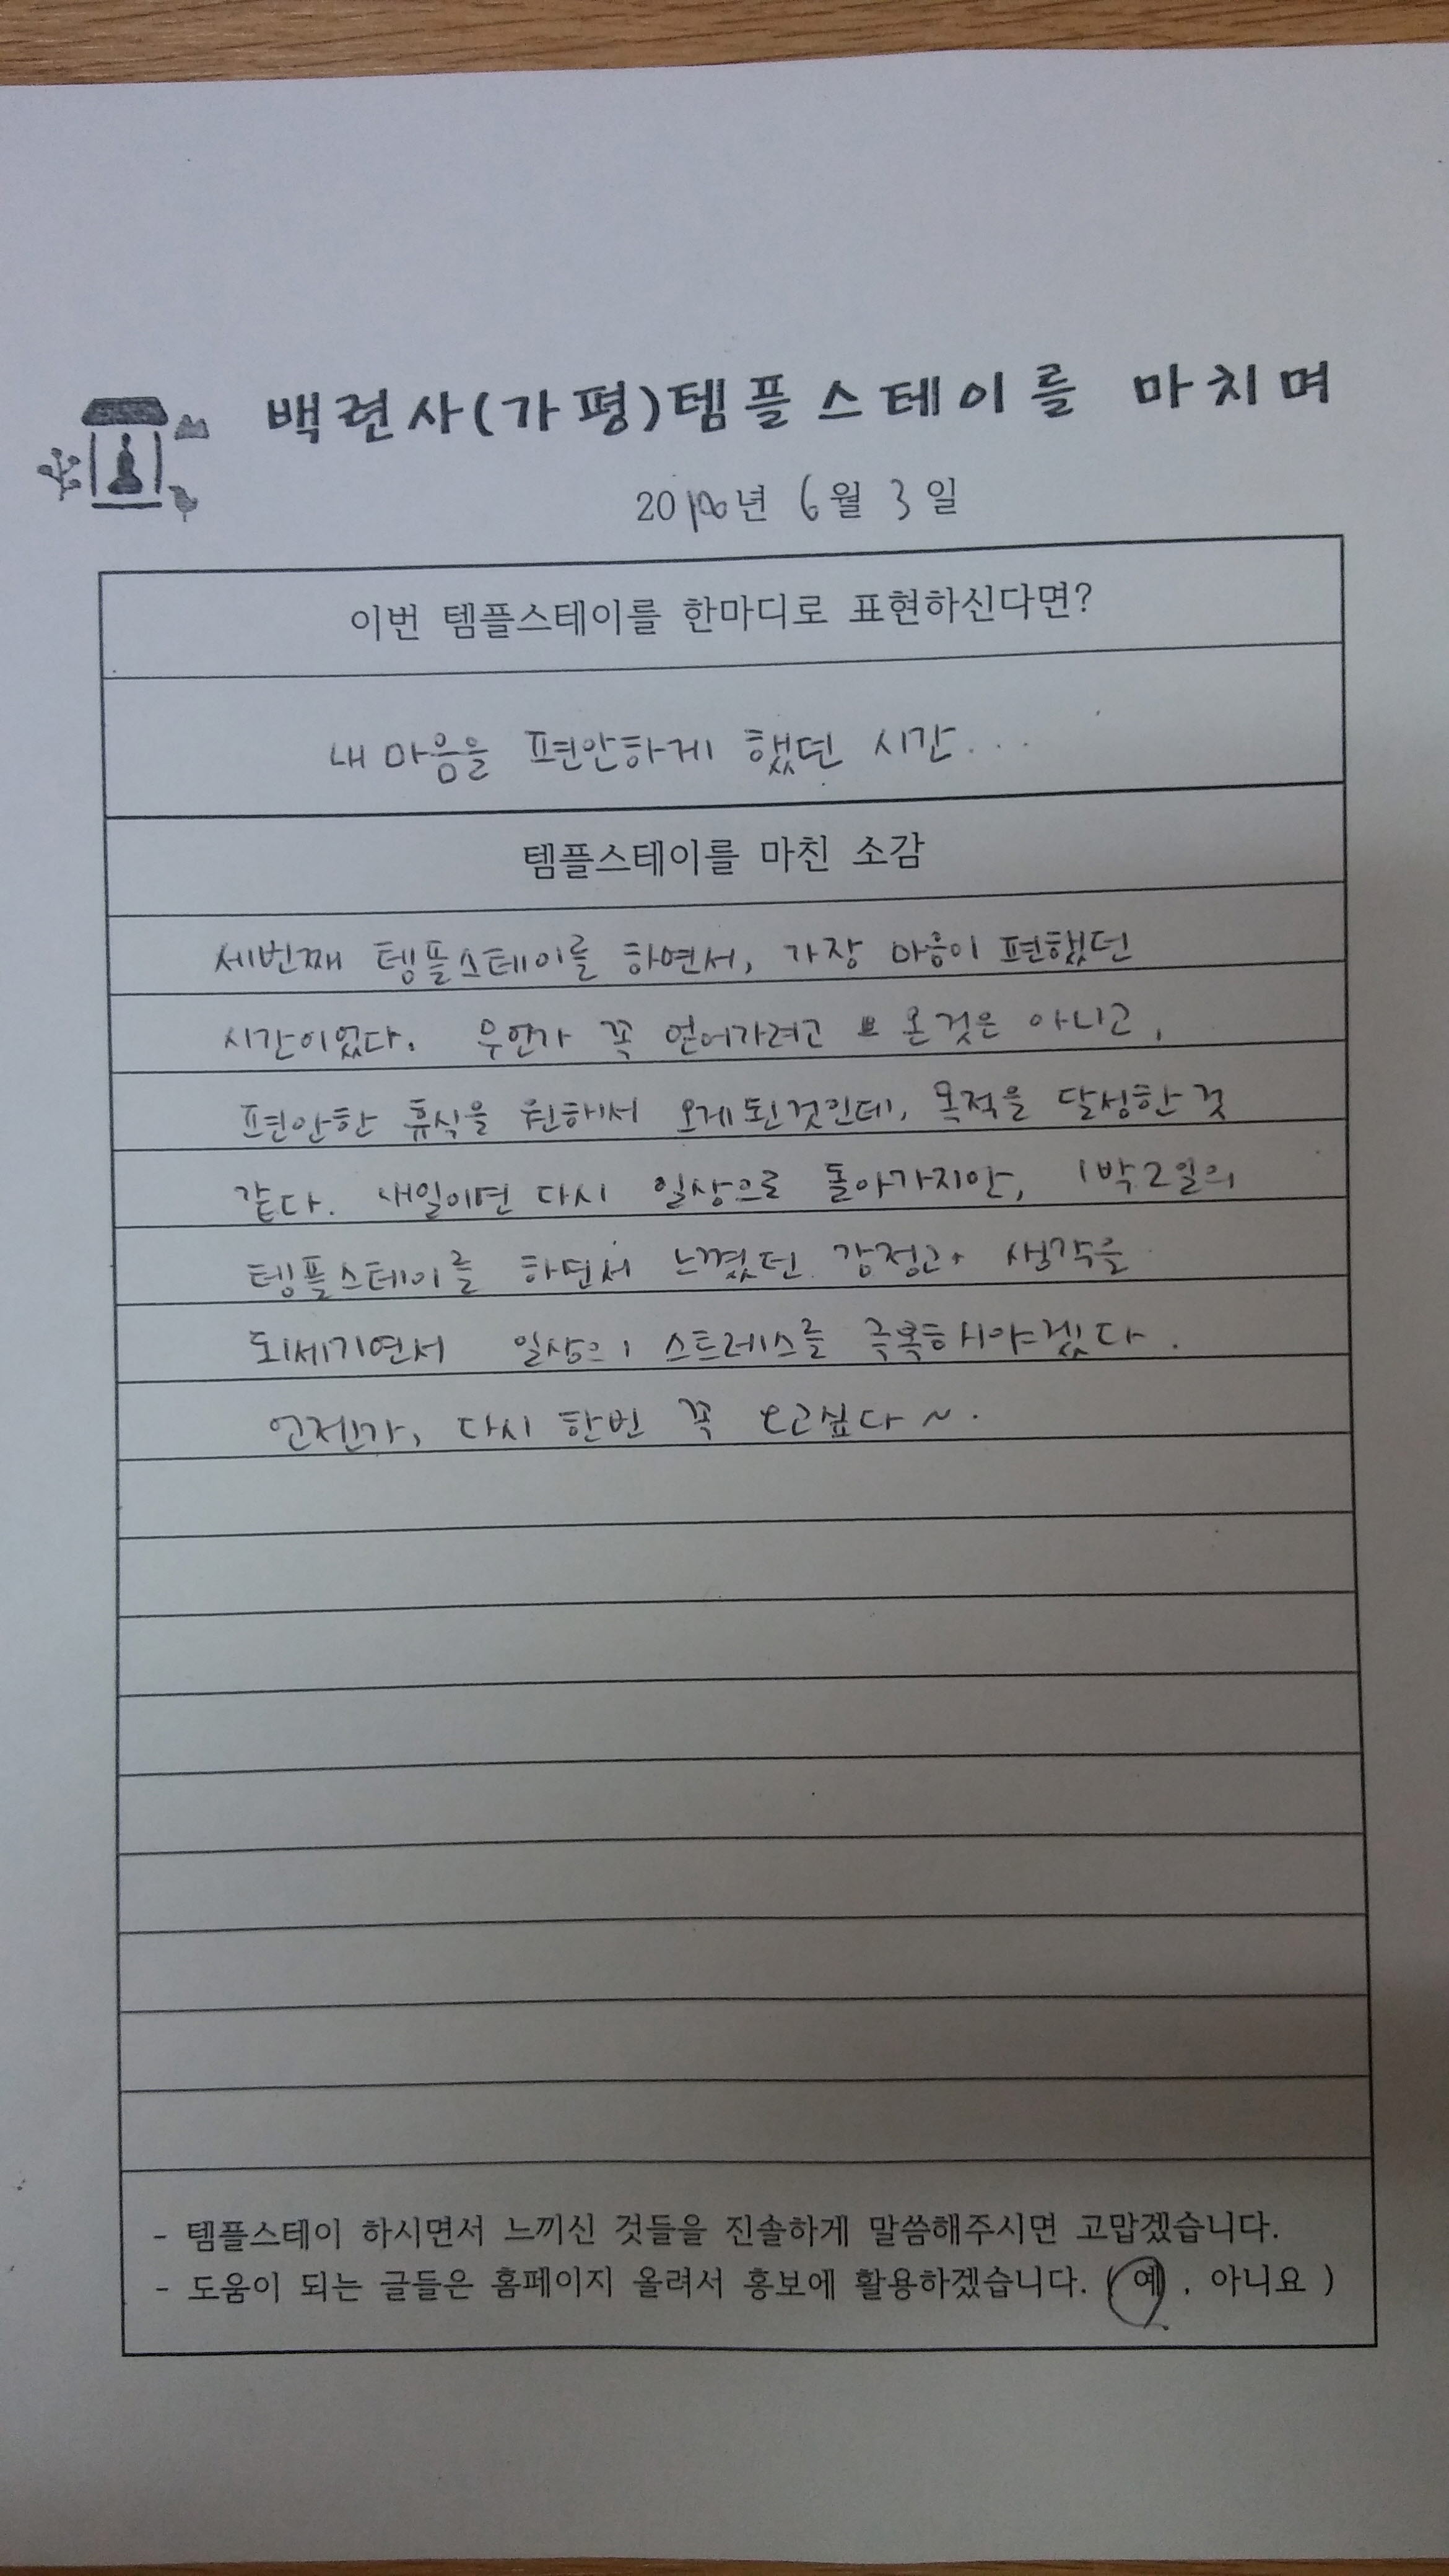 백련사(가평)템플스테이를 마치며
년 6월 3일
이번 템플스테이를 한마디로 표현하신다면?
내 마음을 편안하게 했던 시간...
템플스테이를 마친 소감
세번째 템플스테이를 하면서, 가장 마음이 편했던
시간이었다. 무언가 꼭 얻어가려고 온것은 아니고,
편안한 휴식을 원해서 오게된것인데, 목적을 달성한 것
같다. 내일이면 다시 일상으로 돌아가지만, 1박2일의
템플스테이를 하면서 느꼈던 감정과 생각을
되세기면서 일상의 스트레스를 극복해야겠다.
언젠가, 다시 한번 꼭 오고싶다~.
- 템플스테이 하시면서 느끼신 것들을 진솔하게 말씀해주시면 고맙겠습니다.
- 도움이 되는 글들은 홈페이지 올려서 홍보에 활용하겠습니다. ( 예 , 아니요 )